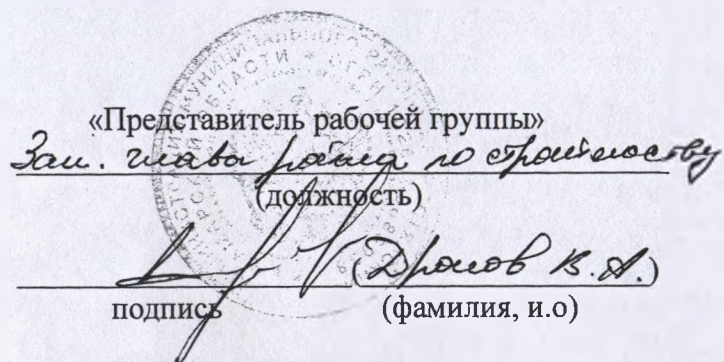 «Представитель рабочей группы»
Зам. главы района по строительству
(должность)
(Дронов В.А.)
подпись (фамилия, и.о)